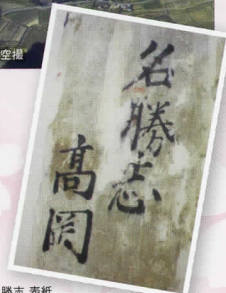 空撮
名勝志
高岡
勝志 表紙